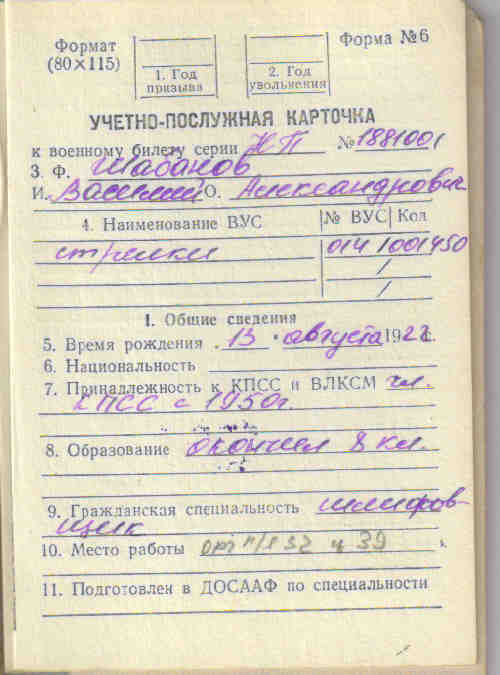 Формат
(80×115)
Форма №6
1. Год
призыва
2. Год
увольнения
УЧЕТНО-ПОСЛУЖНАЯ КАРТОЧКА
к военному билету серии НП № 1881001
3. Ф. Шабанов
И. Василий О. Александрович
4. Наименование ВУС № ВУС Код
стрелки 014 1001 450
1. Общие сведения
5. Время рождения 13 августа 1927 г.
6. Национальность
7. Принадлежность к КПСС и ВЛКСМ чл.
КПСС с 1950г.
8. Образование окончил 8 кл.
9. Гражданская специальность шлифов-
щик
10. Место работы орг п/я 32 ц 39
11. Подготовлен в ДОСААФ по специальности